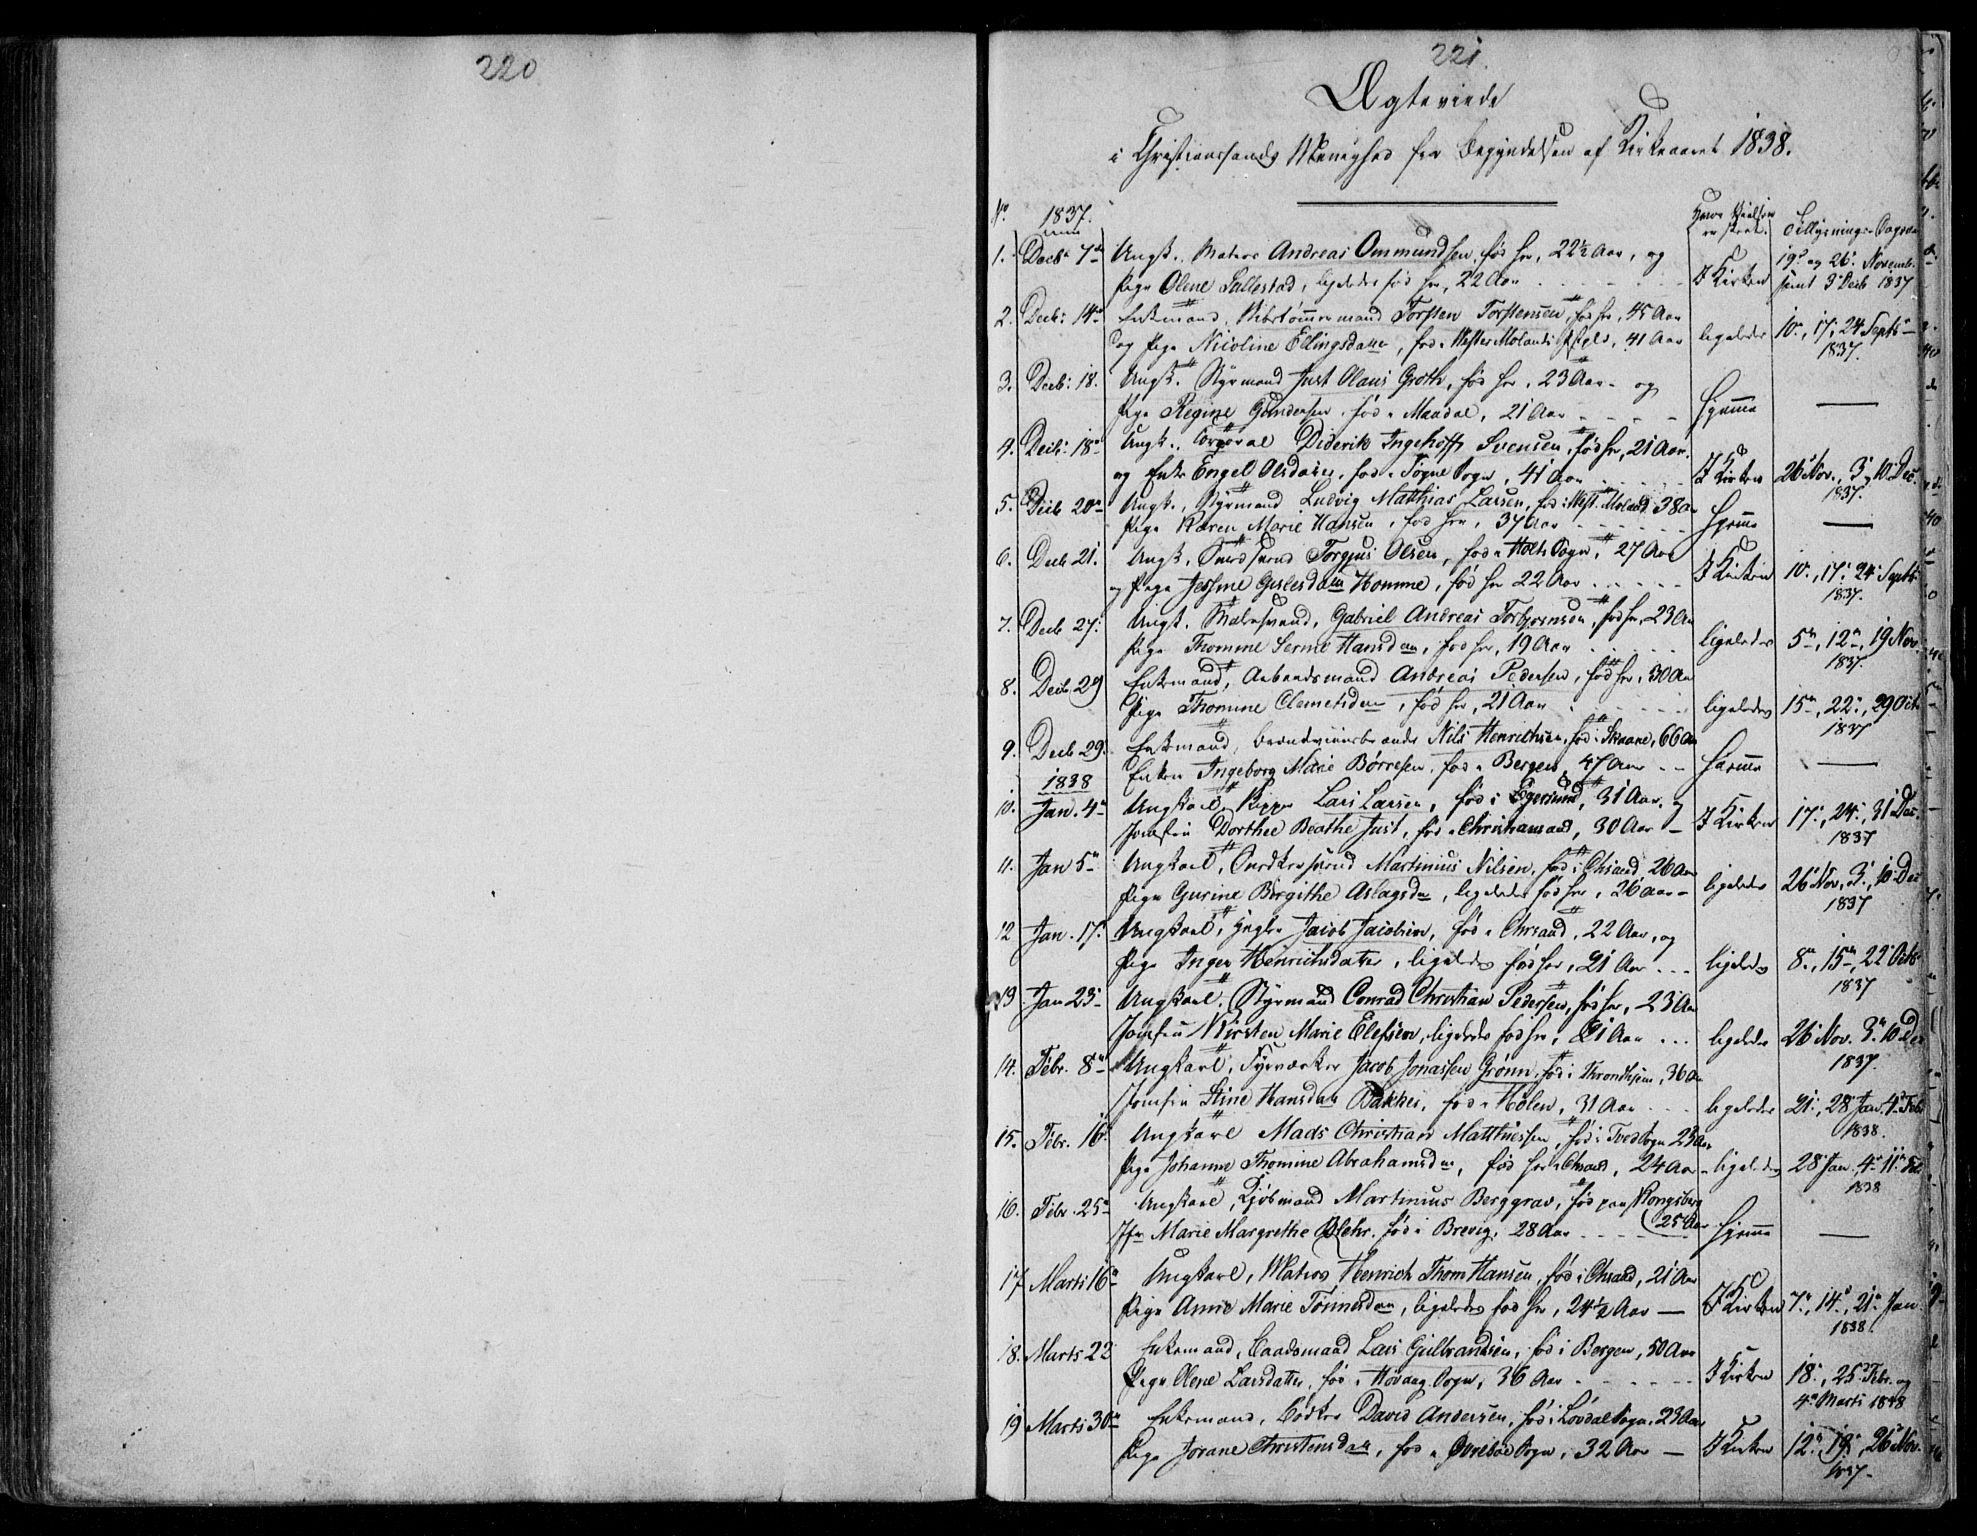 220
221.
Ægteviede
i Christianssands Menighed fra Begyndelsen af Kirkeaaret 1838.
No. 1837.
Hvor Vielsen er skeet. Tillysnings-Dagene
1. Decb. 7de Ungk. Matros Andreas Ommundsen, fød her, 22½ Aar, og
Pige Olene Sallestad, ligeledes fød her, 22 Aar
I Kirken 19de og 26. Novemb. samt 3 Decb 1837
2. Decb: 14de Enkemand, Skibstømmermand Torsten Torstensen, fød her, 45 Aar
og Pige Nicoline Ellingsdatter, fød i Wester Molands, 41 Aar
ligeledes 10., 17., 24 Septb. 1837.
3. Decb: 18. Ungk. Styrmand Just Olaus Groth, fød her, 23 Aar - og
Pige Regine Gundersen, fød i Mandal, 21 Aar
Hjemme —
4. Decb: 18. Ungk. Corporal Diderik Ingehoff Svensen, fød her, 21 Aar.
og Enke Engel Olsdatter, fød i Søgne Sogn, 41 Aar
I Kirken 26 Nov., 3., 10. Dec. 1837.
5. Decb 20. Ungk., Styrmand Ludvig Matthias Larsen, fød i West. Moland 38 Aar
Pige Karen Marie Hansen, fød her, 37 Aar
Hjemme —
6. Decb 21. Ungk. Torgjus Olsen, fød i Holts Sogn, 27 Aar
og Pige Jessine Gislesdatter Homme, fød her 22 Aar
I Kirken 10., 17. 24 Septb. 1837.
7. Decb 27. Ungk. Gabriel Andreas Torbjørnsen, fød her, 23 Aar
Pige Thomme Serine Hansdatter, fød her, 19 Aar
ligeledes 5., 12., 19 Nov. 1837
8. Decb 29 Enkemand, Arbeidsmand Andreas Pedersen, fød her, 30 Aar
Pige Thomine Clemetsdatter, fød her, 21 Aar
ligeledes 15., 22., 29 Octb 1837
9. Decb 29. Enkemand, Nils Henrichsen, fød i Skaane, 66 Aar
Enken Ingeborg Marie Børresen, fød i Bergen, 47 Aar
Hjemme —
1838
10. Jan. 4. Ungkarl, Lars Larsen, fød i Egersund, 31 Aar, og
Jomfru Dorthea Beathe Just, fød i Christiansand, 30 Aar
I Kirken 17., 24., 31 Dec. 1837
11. Jan 5. Ungkarl, Snedkersvend Martinius Nilsen, fød i Chrsand 26 Aar
Pige Gurine Birgithe Aslagsdr, ligeledes fød her, 26 Aar
ligeledes 26 Nov., 3., 10 Dec 1837
12 Jan. 17. Ungkarl, Jacob Jacobsen, fød i Chrsand, 22 Aar, og
Pige Inger Henrichsdatter, ligeledes fød her, 21 Aar
ligeledes 8., 15., 22 Octb 1837
13 Jan 23. Ungkarl, Styrmand Conrad Christian Pedersen, fød her, 23 Aar
Jomfru Kirsten Marie Elefsen, ligeledes fød her, 21 Aar
ligeledes 26 Nov. 3. 10 Dec 1837.
14. Febr. 8. Ungkarl, Fyrværker Jacob Jonassen Grønn, fød i Trondhjem, 36 Aar
Jomfru Stine Hansdatter Bakke, fød i Holen, 31 Aar
ligeledes 21., 28 Jan. 4. Feb. 1838.
15. Febr. 16. Ungkarl Mads Christian Matthiessen, fød i Tveds Sogn 23 Aar
Pige Johanne Thomine Abrahamsdr, fød her i Chrsand, 24 Aar
ligeledes 28 Jan. 4. 11. Feb 1838
16. Febr. 25. Ungkarl, Kjøbmand Martinius Berggrav, fød paa Kongsberg
(25 Aar
Jfr Marie Margrethe Blehr, fød i Brevig, 28 Aar
Hjemme —
17 Marts 16. Ungkarl, Matros Henrich Thom Hansen, fød i Chrsand, 21 Aar
Pige Anne Marie Tønnesdatter, ligeledes fød her, 24½ Aar —
I Kirken 7., 14., 21. Jan. 1838.
18. Marts 22 Enkemand, Lars Gulbrandsen, fød i Bergen, 50 Aar
Pige Olene Larsdatter, fød i Høvaag Sogn, 36 Aar
I Kirken 18., 25 Febr. og 4. Marts 1838
19 Marts 30. Enkemand, Bødker David Andersen, fød i Løvdal Sogn, 23 Aar
Pige Jorane Christensdatter, fød i Øvrebøe Sogn, 32 Aar —
I Kirken 12., 19., 26 Nov. 1837.